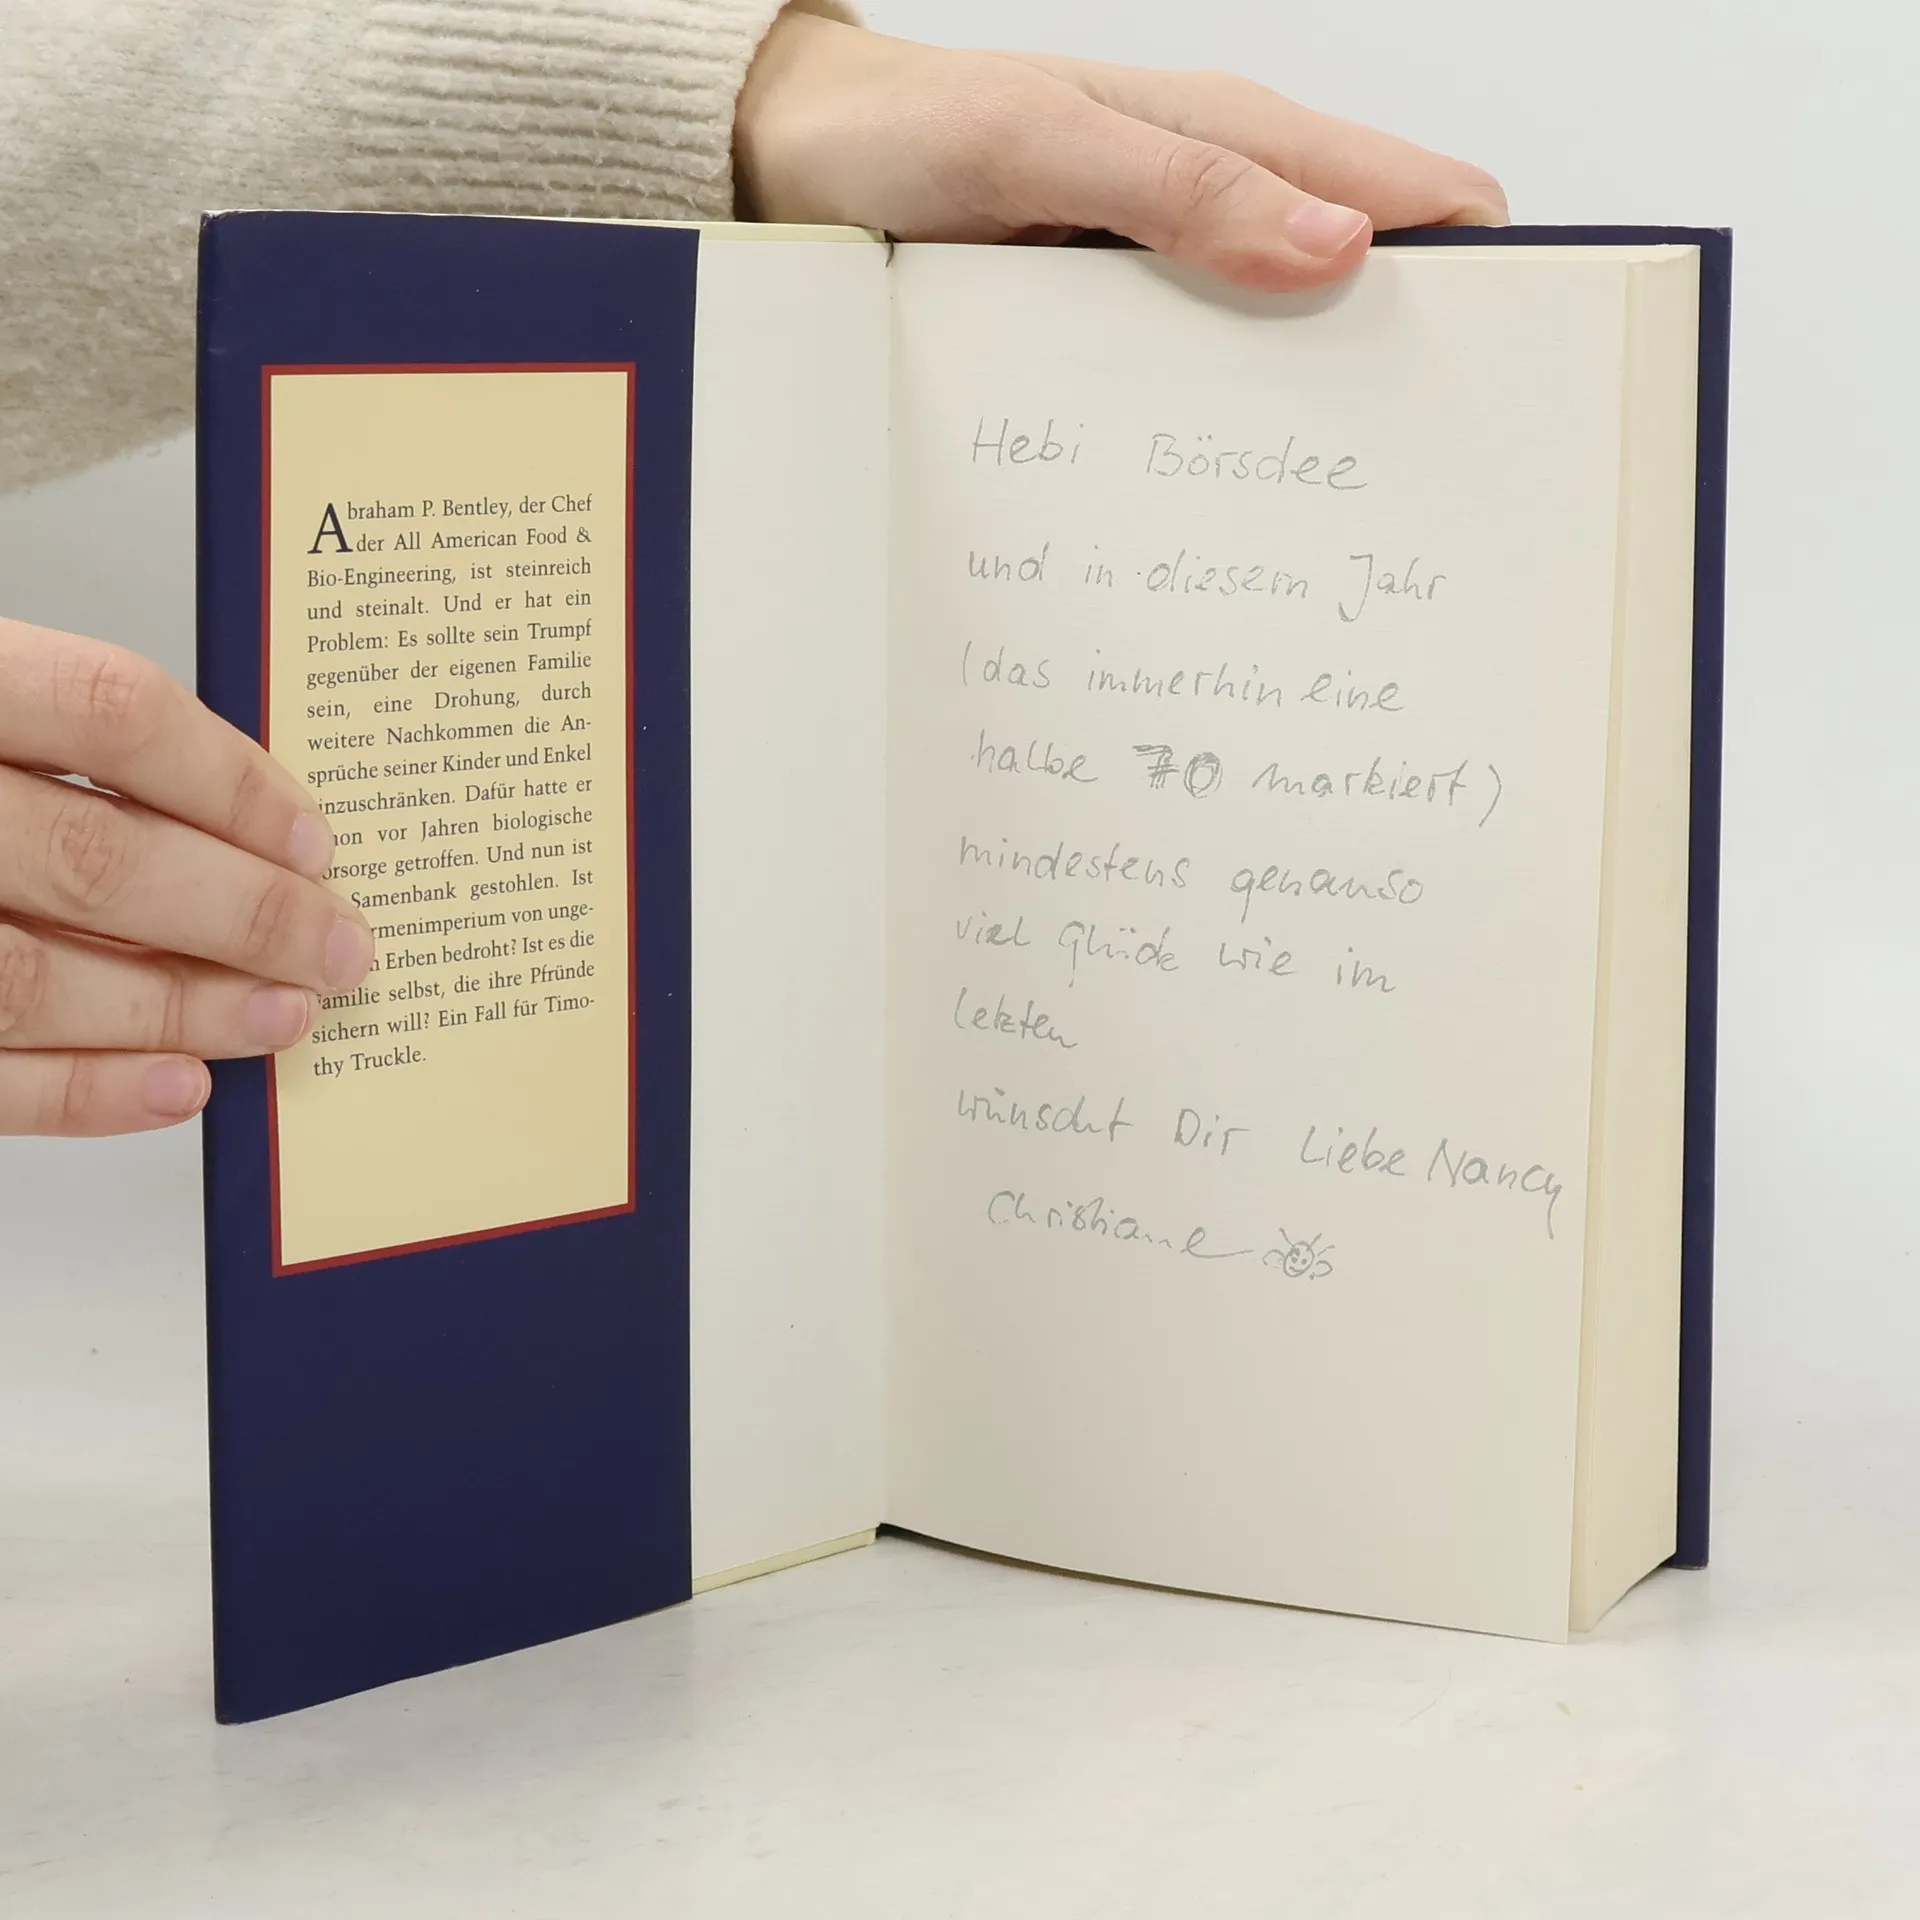 Abraham P. Bentley, der Chef
der All American Food &
Bio-Engineering, ist steinreich
und steinalt. Und er hat ein
Problem: Es sollte sein Trumpf
gegenüber der eigenen Familie
sein, eine Drohung, durch
weitere Nachkommen die An-
sprüche seiner Kinder und Enkel
inzuschränken. Dafür hatte er
hon vor Jahren biologische
orsorge getroffen. Und nun ist
Samenbank gestohlen. Ist
rmenimperium von unge-
n Erben bedroht? Ist es die
Familie selbst, die ihre Pfründe
sichern will? Ein Fall für Timo-
thy Truckle.
Hebi Börsdee
und in diesem Jahr
(das immerhin eine
halbe 70 markiert)
mindestens genauso
viel Glück wie im
letzten
wünscht Dir Liebe Nancy
Christiane